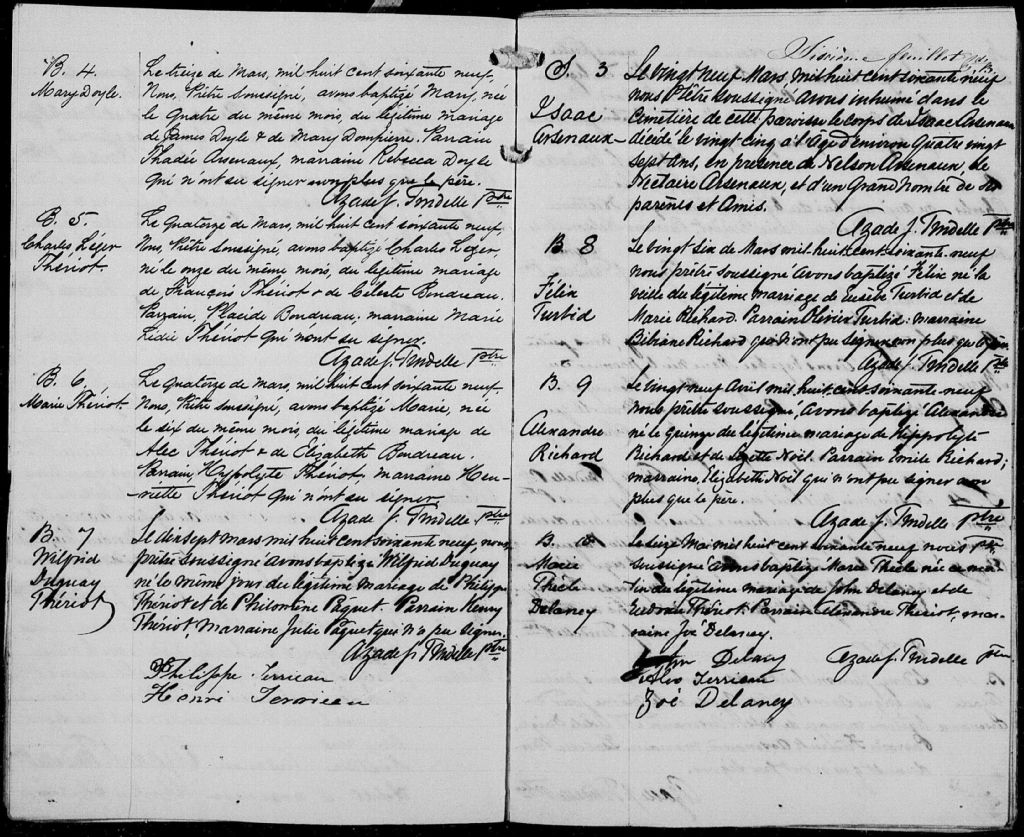 B. 4
Mary Doyle.
Le treize de Mars, mil huit cent soixante neuf,
Nous, Prêtre soussigné, avons baptizé Mary, née
le quatre du même mois, du légitime mariage
de James Doyle & de Mary Dompierre. Parrain
Thadée Arsenaux, marraine Rebecca Doyle
qui n'ont su signer non plus que le père.
Azade J. Trudelle Ptre
B. 5.
Charles Léger
Thériot.
Le Quatorze de Mars, mil huit cent soixante neuf,
Nous, Prêtre soussigné, avons baptizé Charles Leger,
né le onze du même mois, du légitime mariage
de François Thériot & de Céleste Boudreau.
Parrain, Placide Boudreau; marraine Marie
Lidie Thériot qui n'ont su signer.
Azade J. Trudelle Ptre
B. 6.
Marie Thériot.
Le Quatorze de Mars, mil huit cent soixante neuf,
Nous, Prêtre soussigné, avons baptizé Marie, née
le six du même mois, du légitime mariage de
Alec Thériot & de Elizabeth Boudreau.
Parrain, Hypolyte Thériot, marraine Hen-
riette Thériot qui n'ont su signer.
Azade J. Trudelle Ptre
B. 7
Wilfrid
Duguay
Thériot
Le dixsept mars mil huit cent soixante neuf, nous
prêtre soussigné avons baptizé Wilfrid Duguay
né le même jour du légitime mariage de Philippe
Thériot et de Philomène Paquet. Parrain Henry
Thériot, Marraine Julie Paquet qui n'a pu signer.
Azade J. Trudelle Ptre
Philippe Terrieau
Henri Terrieau
Sixième feuillet
S. 3
Isaac
Arsenaux
Le vingt neuf Mars mil huit cent soixante neuf
nous Prêtre soussigné avons inhumé dans le
Cemetière de cette paroisse le corps de Isaac Arsenaux
décédé le vingt cinq à l'âge d'environ Quatre vingt
sept ans, en présence de Nelson Arsenaux, de
Nectaire Arsenaux, et d'un Grand nombre de
parents et Amis.
Azade J. Trudelle Ptre
B. 8
Félix
Turbid
Le vingt six de Mars mil huit cent soixante neuf
nous prêtre soussigné avons baptizé Félix né la
veille du légitime marriage de Eusèbe Turbid et de
Marie Richard. Parrain Olivier Turbid: marraine
Bibiane Richard qui n'ont pu signer non plus que
Azade J. Trudelle Ptre
B. 9
Alexandre
Richard
Le vingt neuf Avril mil huit cent soixante neuf
nous prêtre soussigné, avons baptizé Alexandre
né le quinze du légitime mariage de Hippolyte
Richard et de Noël. Parrain Emile Richard;
marraine Elizabeth Noël qui n'ont pu signer non
plus que le père.
Azade J. Trudelle Ptre
B. 10
Marie
Thècle
Delaney
Le seize Mai mil huit cent soixante neuf nous Ptre
soussigné avons baptizé Marie Thècle née ce ma-
tin du légitime mariage de John Delaney et de
Thériot. Parrain Alexandre Thériot, mar-
raine Zoé Delaney.
John Delany
Azade J. Trudelle Ptre
Alex Terrieau
Zoé Delaney